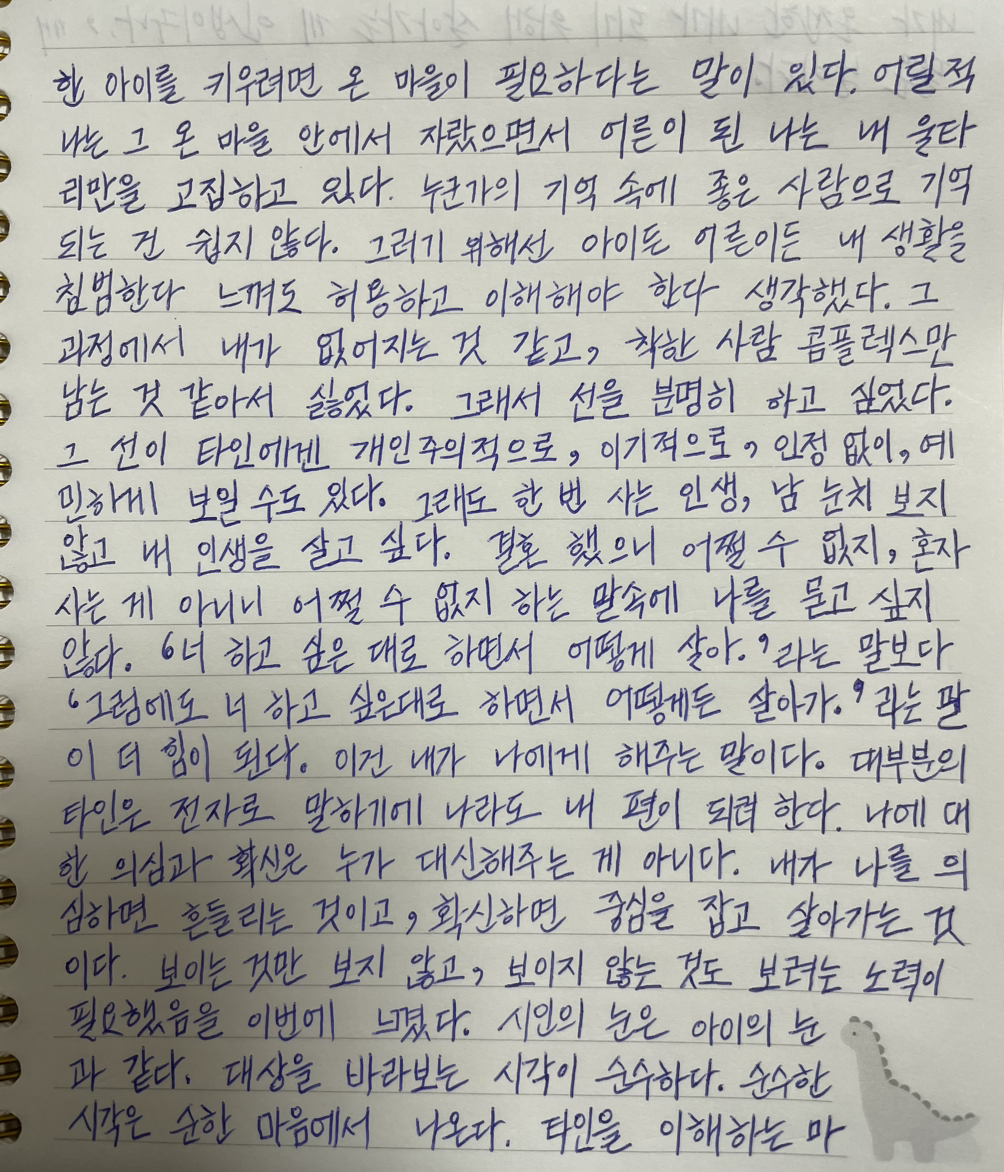 한 아이를 키우려면 온 마을이 필요하다는 말이 있다. 어릴적
나는 그 온 마을 안에서 자랐으면서 어른이 된 나는 내 울타
리만을 고집하고 있다. 누군가의 기억 속에 좋은 사람으로 기억
되는 건 쉽지 않다. 그러기 위해선 아이든 어른이든 내 생활을
침범한다 느껴도 허용하고 이해해야 한다 생각했다. 그
과정에서 내가 없어지는 것 같고, 착한 사람 콤플렉스만
남는 것 같아서 싫었다. 그래서 선을 분명히 하고 싶었다.
그 선이 타인에겐 개인주의적으로, 이기적으로, 인정 없이, 예
민하게 보일 수도 있다. 그래도 한 번 사는 인생, 남 눈치 보지
않고 내 인생을 살고 싶다. 결혼 했으니 어쩔 수 없지, 혼자
사는 게 아니니 어쩔 수 없지 하는 말속에 나를 묻고 싶지
않다. '너 하고 싶은 대로 하면서 어떻게 살아.'라는 말보다
'그럼에도 너 하고 싶은대로 하면서 어떻게든 살아가.'라는 말
이 더 힘이 된다. 이건 내가 나에게 해주는 말이다. 대부분의
타인은 전자로 말하기에 나라도 내 편이 되려 한다. 나에 대
한 의심과 확신은 누가 대신해주는 게 아니다. 내가 나를 의
심하면 흔들리는 것이고, 확신하면 중심을 잡고 살아가는 것
이다. 보이는 것만 보지 않고, 보이지 않는 것도 보려는 노력이
필요했음을 이번에 느꼈다. 시인의 눈은 아이의 눈
과 같다. 대상을 바라보는 시각이 순수하다. 순수한
시각은 순한 마음에서 나온다. 타인을 이해하는 마